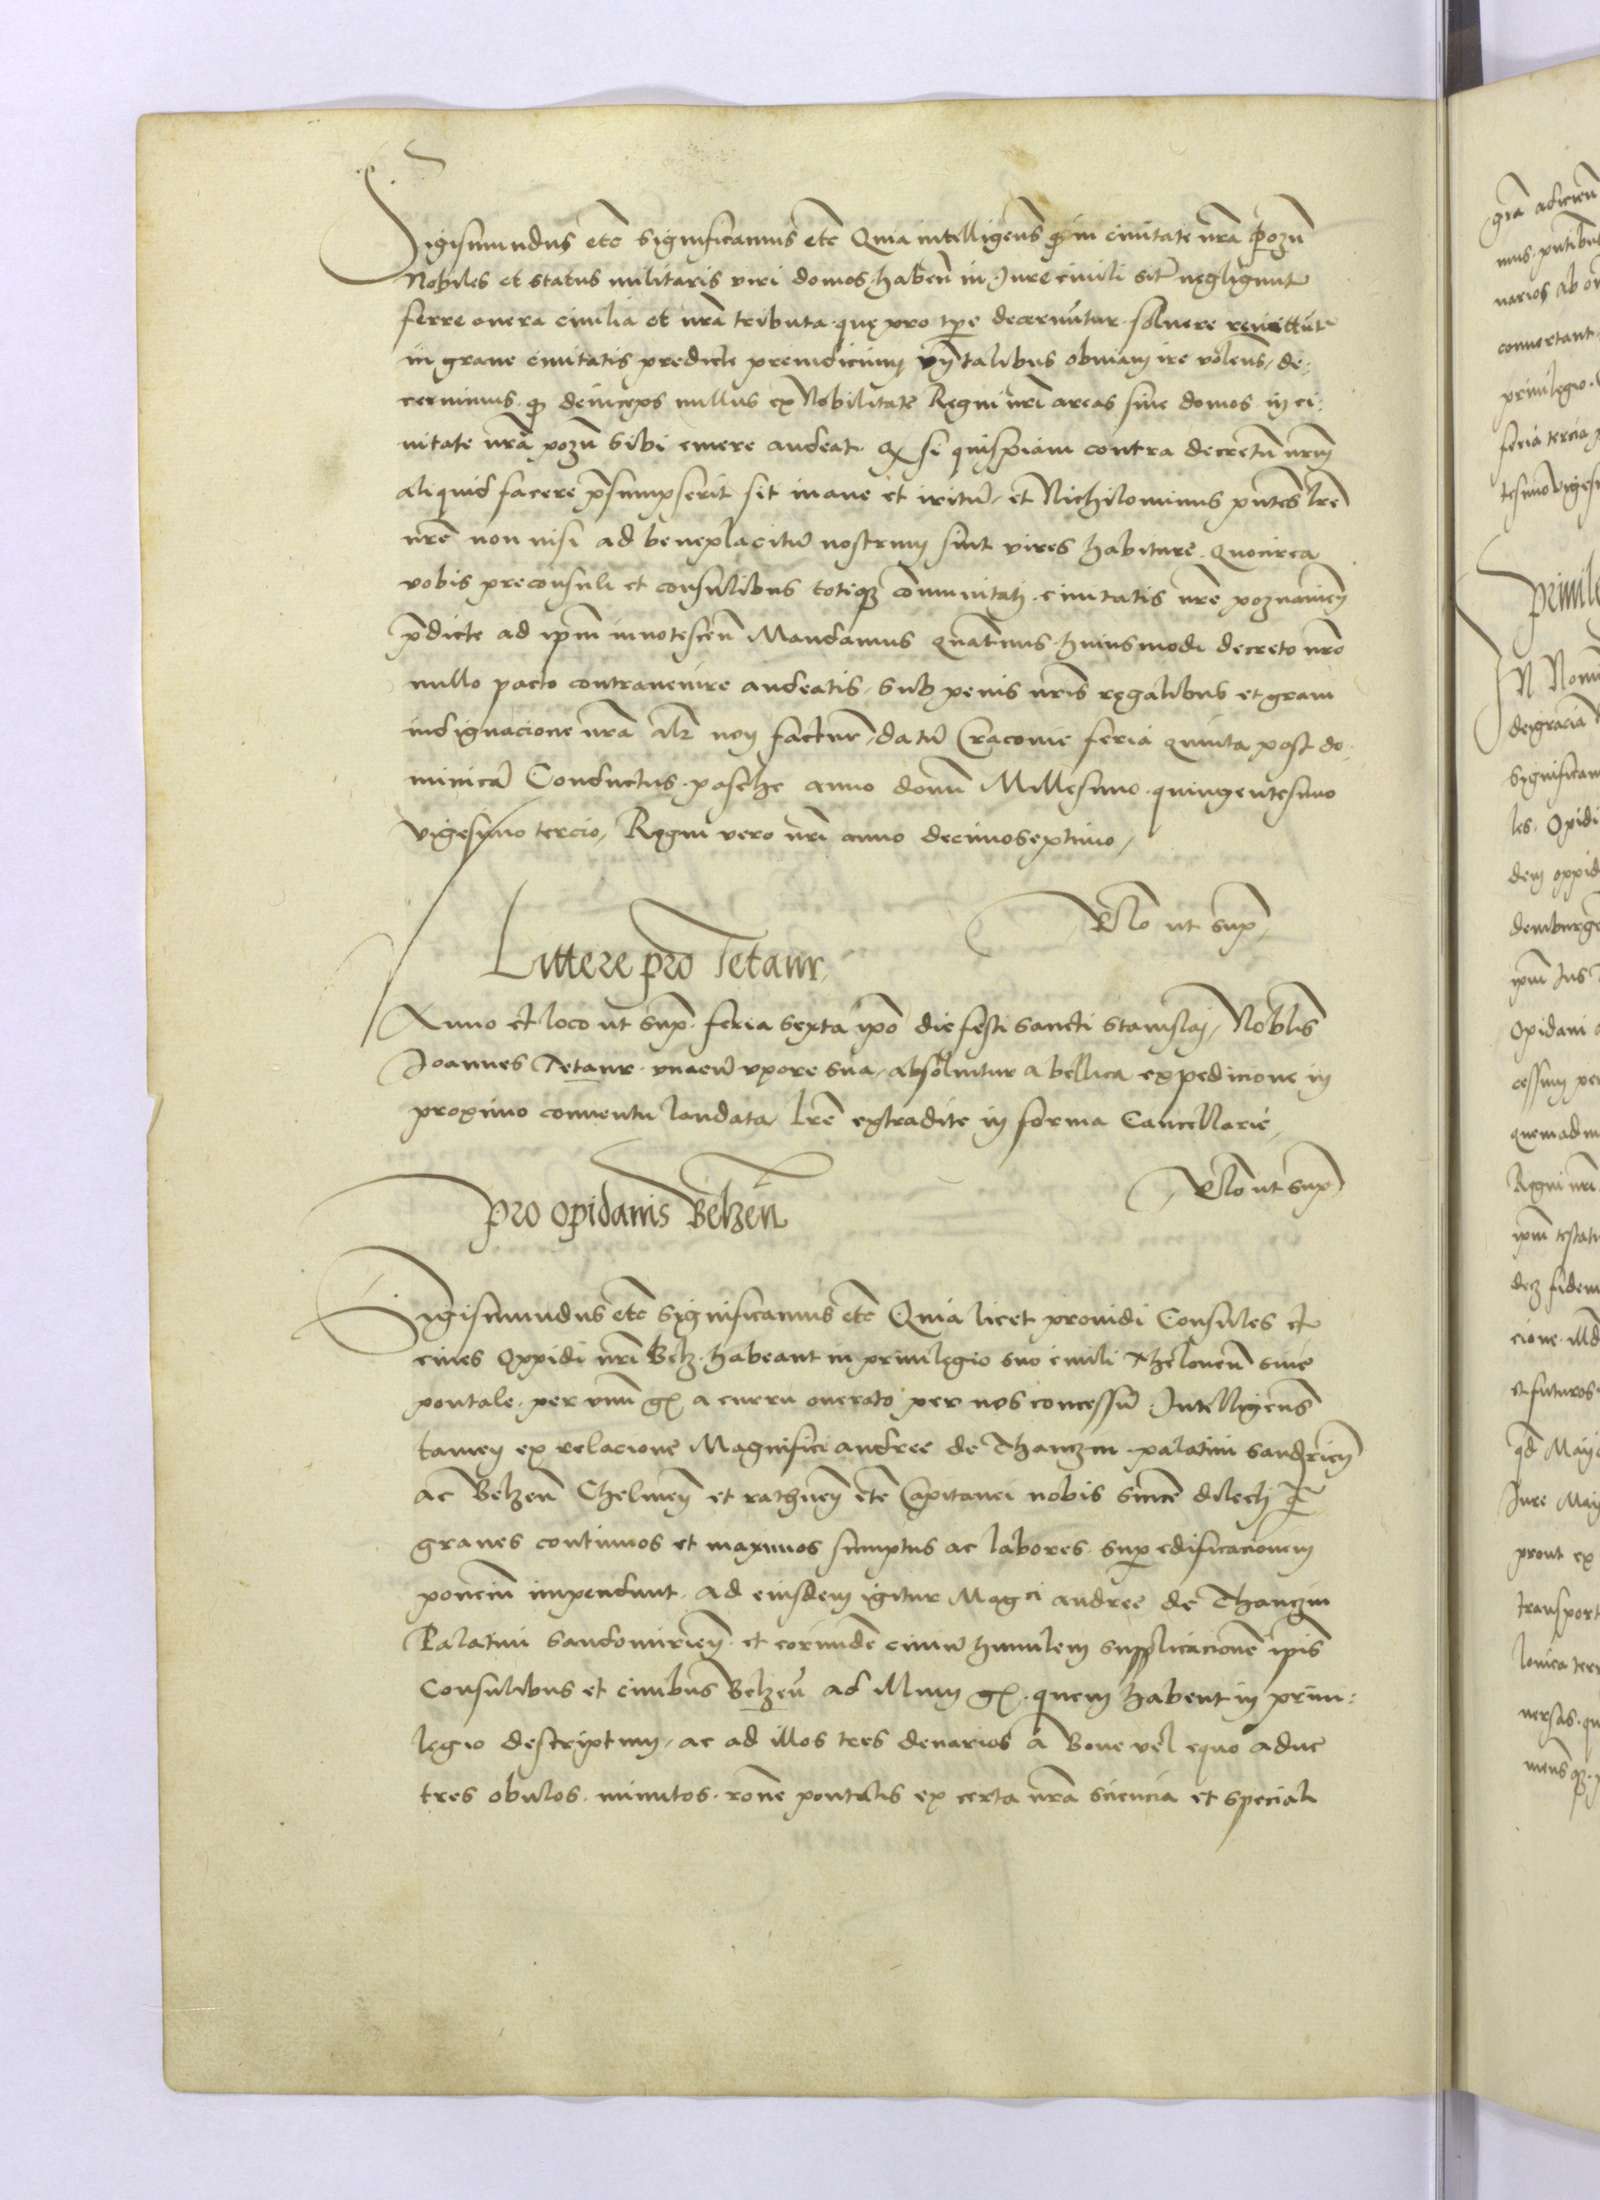 Sigismundus etc̄ Significamus etc̄ Quia intelligen̄s q̄ in ciuitate nr̄a Pozn̄
Nobiles et status militaris viri domos haben̄ in Jure ciuili sit̄ negligunt
ferre onera ciuilia et nr̄a tributa quę pro tp̄e decernūtur soluere
in graue ciuitatis predicte preiudicium talibus obuiam ire volens, de-
cernimus q̄ deinceps nullus ex Nobilitate Regni nr̄i areas siue domos in ci-
uitate nr̄a pozn̄ sibi emere audeat. q̄ si quispiam contra decretū nr̄m
aliquid facere p̄sumpserit sit inane et iritū, et Nichilominus pn̄tes lr̄e
nr̄e non nisi ad beneplacitū nostrum sint vires habiture. Quocirca
vobis preconsuli et consulibus totiqȝ cōmunitati ciuitatis nr̄e poznanien̄
p̄dicte ad ip̄m innotescen̄ Mandamus quat̄nus huiusmodi decreto nr̄o
nullo pacto contrauenire audeatis, sub penis nr̄is regalibus et graui
indignacione nr̄a alr̄ non factur̄, datū Cracouie feria quinta post do-
minicā Conductus pasche anno domī Millesimo quingentesimo
vigesimo tercio, Regni vero nr̄i anno decimoseptimo,
Rl̄o ut sup̄
Littere pro Tetaur
Anno et loco ut sup̄ feria sexta ip̄o die festi sancti stanislai, Nobl̄is
Joannes Tetaur vnacū vxore sua, absoluitur a bellica expedicione in
proximo conuentu laudata lr̄e extradite in forma Cancellarie,
Rl̄o ut sup̄
Pro opidanis Belzen̄
Sigismundus etc̄ Significamus etc̄ Quia licet prouidi Consules et
ciues Oppidi nr̄i Belz habeant in priuilegio suo ciuili theloneū siue
pontale per vnū gͬ a curru onerato per nos concessū Intelligen̄s
tamen ex relacione Magnifici andree de Thanczin palatini sandr̄ien̄
ac Belzen̄ Chelmen̄ et rathnen̄ etc̄ Capitanei nobis sincē dilecti q̄
graues continuos et maximos sumptus ac labores sup̄ edificacionem
ponciū impendunt ad eiusdem igitur Mag^ci andree de Thanczin
Palatini sandomirien̄ et eorundē ciuiū humilem supplicacionē ip̄is
Consulibus et ciuibus Belzen̄ ad illum gͬ quem habent in priui-
legio descriptum, ac ad illos tres denarios a Boue vel equo aduc
tres obulos minutos ron̄e pontalis ex certa nr̄a sciencia et speciali